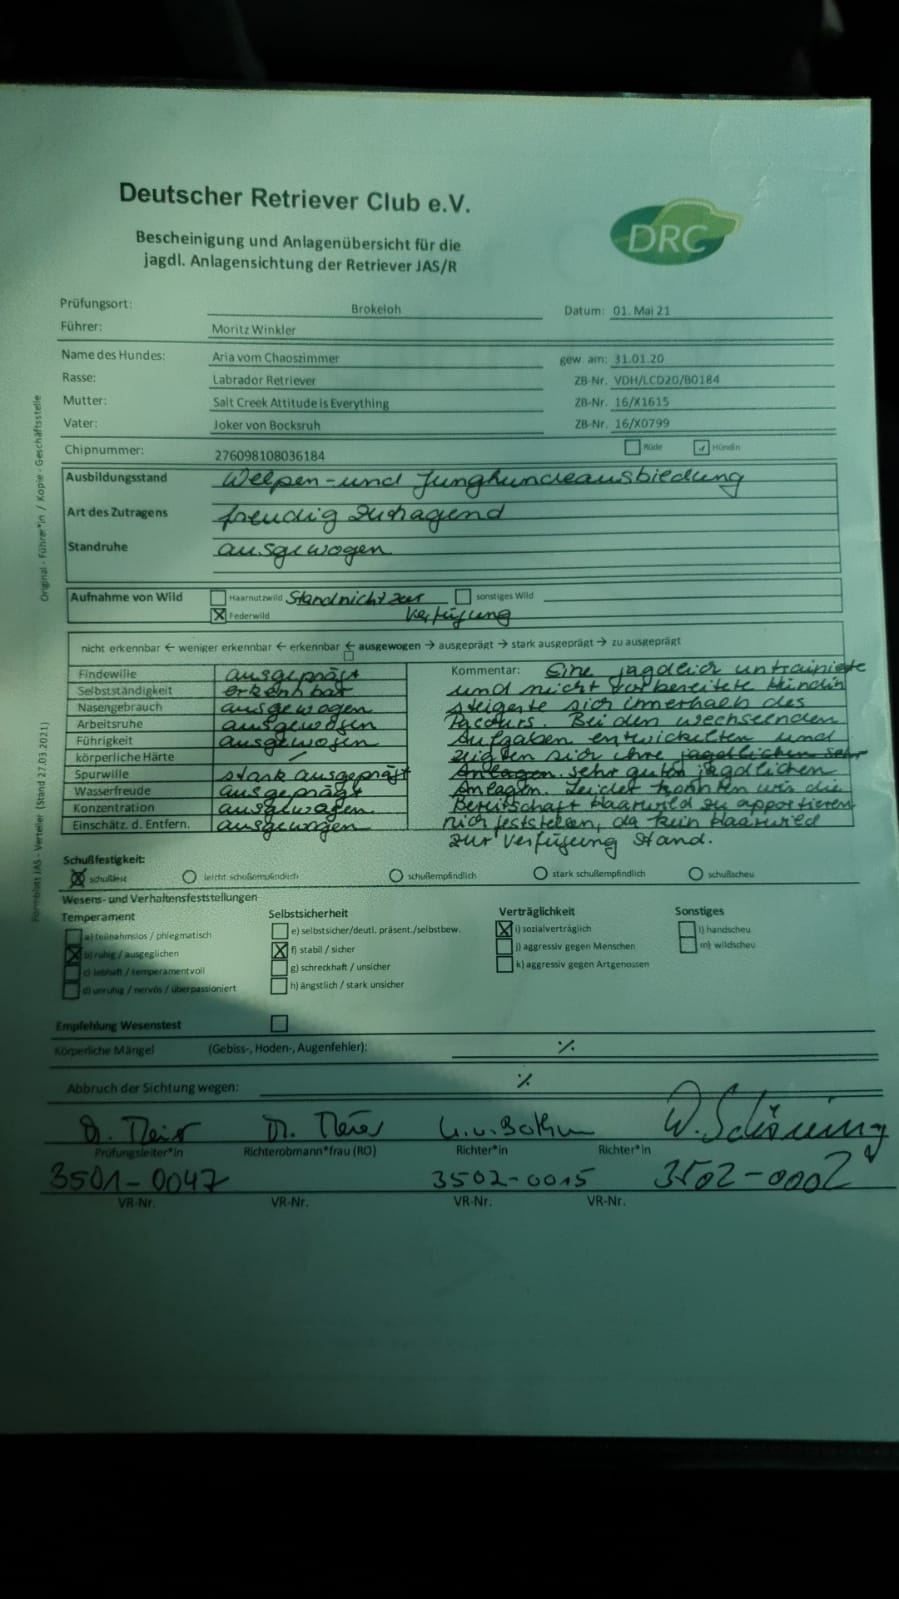 Deutscher Retriever Club e.V.
DRC
Bescheinigung und Anlagenübersicht für die
jagdl. Anlagensichtung der Retriever JAS/R
Prüfungsort: Brokeloh Datum: 01. Mai 21
Führer: Moritz Winkler
Name des Hundes: Aria vom Chaoszimmer gew. am: 31.01.20
Rasse: Labrador Retriever ZB-Nr. VDH/LCD20/B0184
Mutter: Salt Creek Attitude is Everything ZB-Nr. 16/X1615
Vater: Joker von Bocksruh ZB-Nr. 16/X0799
Chipnummer: 276098108036184 Rüde Hündin
Ausbildungsstand Welpen- und Junghundeausbiedung
Art des Zutragens freudig zutragend
Standruhe ausgewogen
Aufnahme von Wild Haarnutzwild Stand nicht zur sonstiges Wild
Federwild Verfügung
nicht erkennbar ← weniger erkennbar ← erkennbar ← ausgewogen → ausgeprägt → stark ausgeprägt → zu ausgeprägt
Findewille ausgeprägt
Selbstständigkeit erkennbar
Nasengebrauch ausgewogen
Arbeitsruhe ausgewogen
Führigkeit ausgewogen
körperliche Härte /
Spurwille stark ausgeprägt
Wasserfreude ausgeprägt
Konzentration ausgewogen
Einschätz. d. Entfern. ausgewogen
Kommentar: Eine jagdlich untrainierte
und nicht vorbereitete Hündin
steigerte sich innerhalb des
Pacours. Bei den wechselnden
Aufgaben entwickelten und
zeigten sich ihre jagdlichen sehr
Anlagen. sehr guten jagdlichen
Anlagen. Leider konnten wir die
Bereitschaft Haarwild zu apportieren
nich feststellen, da kein Haarwild
zur Verfügung stand.
Schußfestigkeit:
schußfest leicht schußempfindlich schußempfindlich stark schußempfindlich schußscheu
Wesens- und Verhaltensfeststellungen
Temperament Selbstsicherheit Verträglichkeit Sonstiges
a) teilnahmslos / phlegmatisch e) selbstsicher/deutl. präsent./selbstbew. i) sozialverträglich l) handscheu
b) ruhig / ausgeglichen f) stabil / sicher j) aggressiv gegen Menschen m) wildscheu
c) lebhaft / temperamentvoll g) schreckhaft / unsicher k) aggressiv gegen Artgenossen
d) unruhig / nervös / überpassioniert h) ängstlich / stark unsicher
Empfehlung Wesenstest
Körperliche Mängel (Gebiss-, Hoden-, Augenfehler): ./.
Abbruch der Sichtung wegen: ./.
W. Schöning
Prüfungsleiter*in Richterobmann*frau (RO) Richter*in Richter*in
3501-0047 3502-0015 3502-0002
VR-Nr. VR-Nr. VR-Nr. VR-Nr.
Original - Führer*in / Kopie - Geschäftsstelle
Formblatt JAS - Verteiler (Stand 27.03.2021)